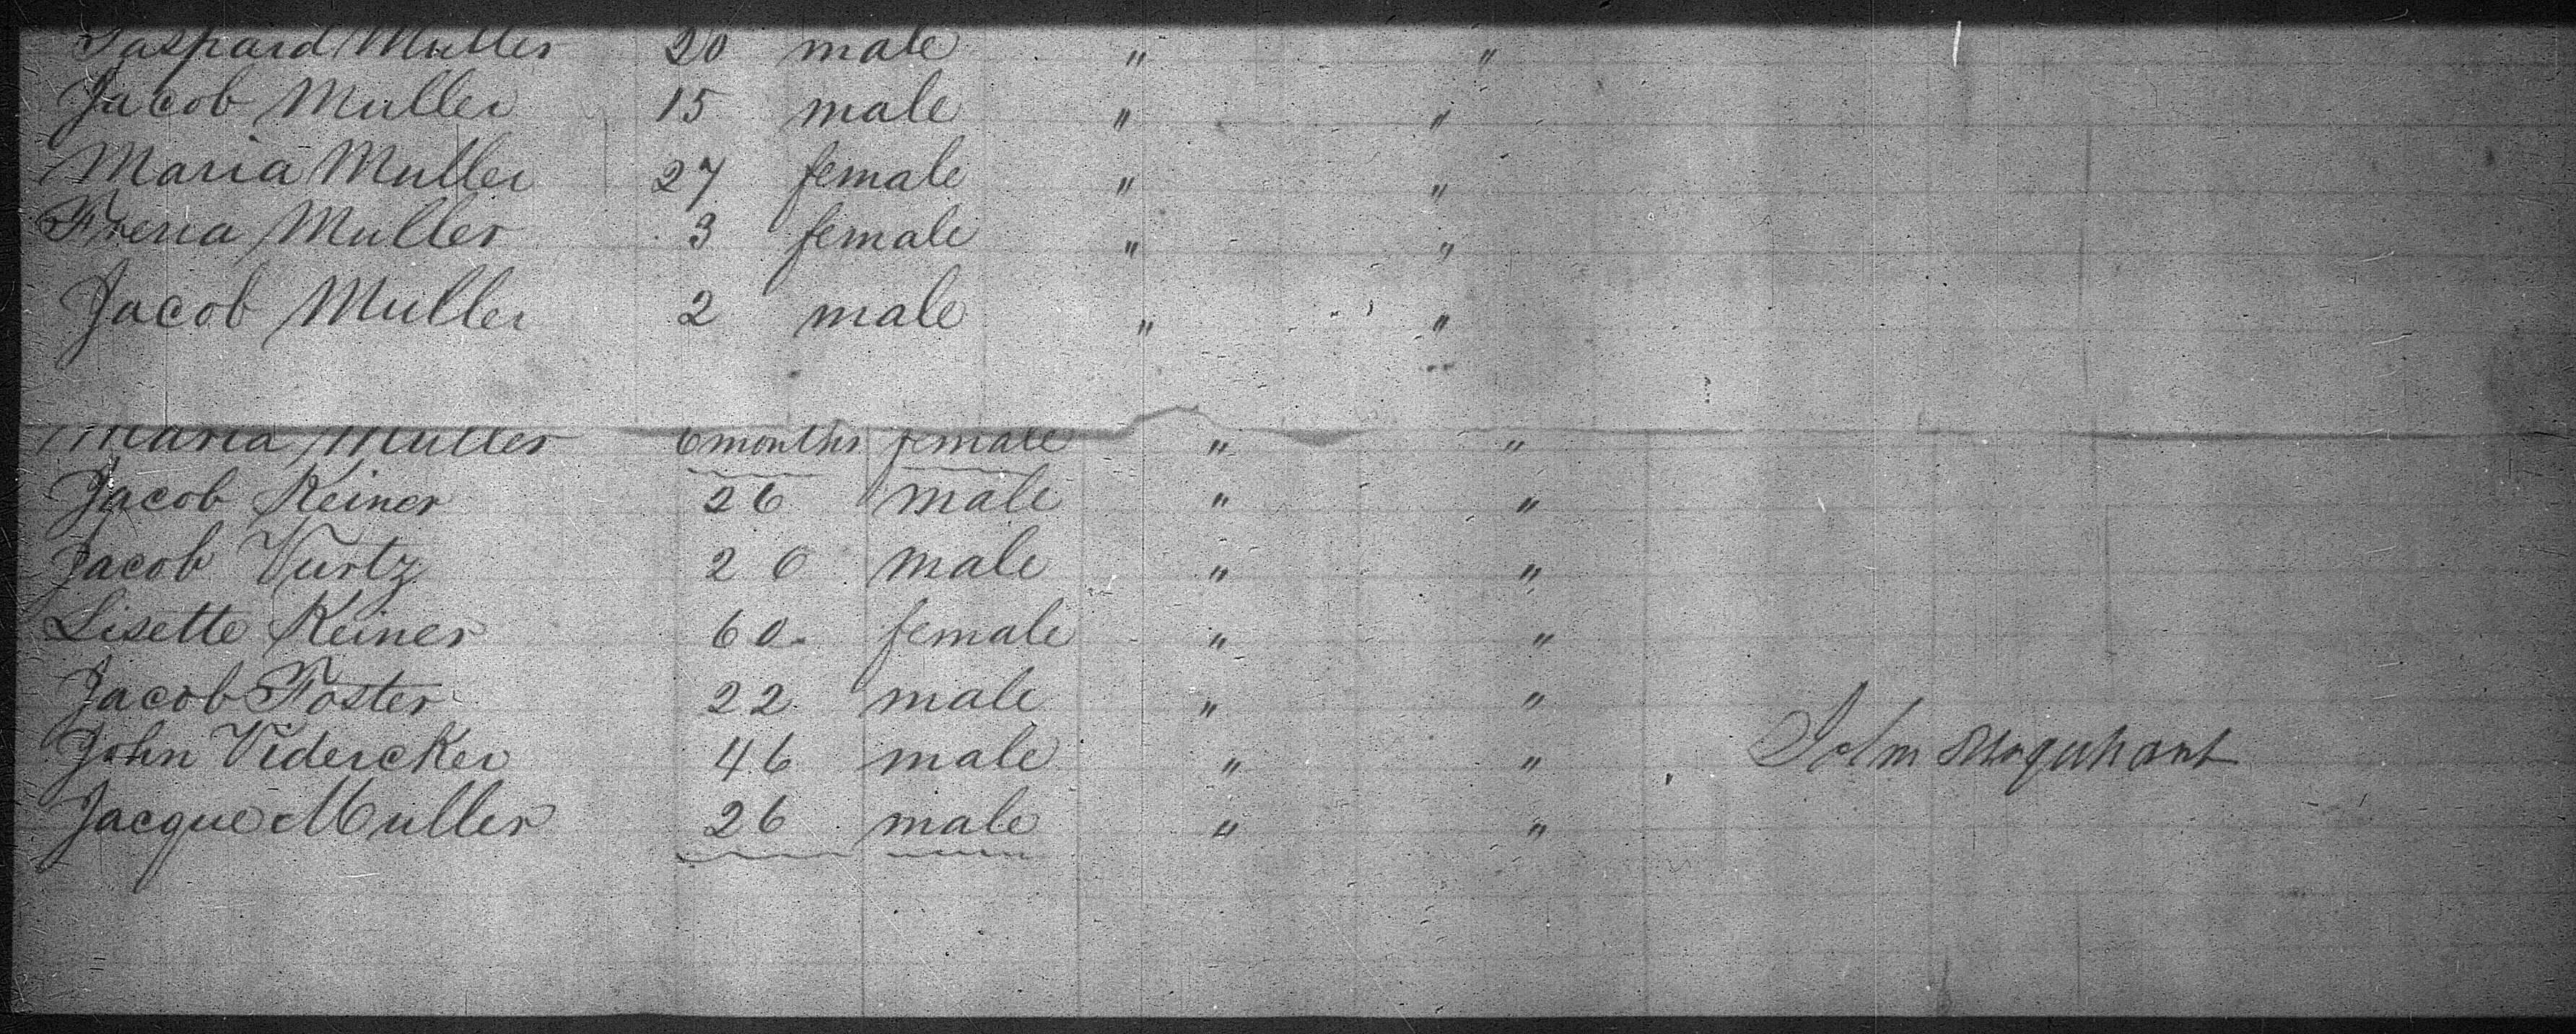 Gaspard Muller 20 male " "
Jacob Muller 15 male " "
Maria Muller 27 female " "
Frena Muller 3 female " "
Jacob Muller 2 male " "
Maria Muller 6 months female " "
Jacob Keiner 26 male " "
Jacob Vurtz 20 male " "
Lisette Keiner 60 female " "
Jacob Foster 22 male " "
John Vidercker 46 male " " John Urquhart
Jacque Muller 26 male " "